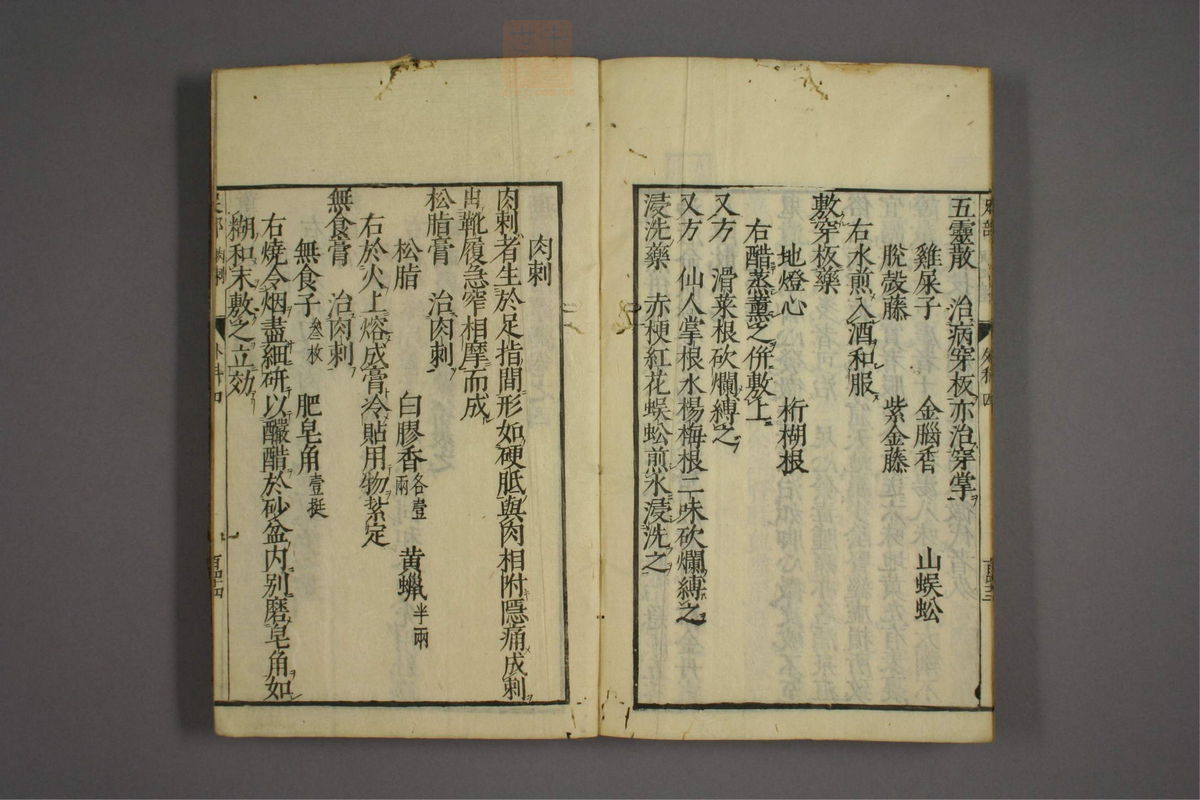 五靈散　治病穿板亦治穿掌
雞屎子　金腦香　山蜈蚣
脫殼藤　紫金藤
右水煎入酒和服
敷穿板藥
地燈心　桁楜根
右醋蒸薰之併敷上
又方　滑菜根砍爛縛之
又方　仙人掌根水楊梅根二味砍爛縛之
浸洗藥　赤梗紅花蜈蚣煎水浸洗之
肉刺
肉刺者生於足指間形如硬胝與肉相附隱痛成刺
由靴履急窄相摩而成
松脂膏　治肉刺
松脂　白膠香各壹兩　黃蠟半兩
右於火上熔成膏冷貼用物紮定
無食膏　治肉刺
無食子叄枚　肥皂角壹挺
右燒令烟盡細研以釅醋於砂盆内別磨皂角如
糊和末敷之立効
肉刺　外科四　百四十四